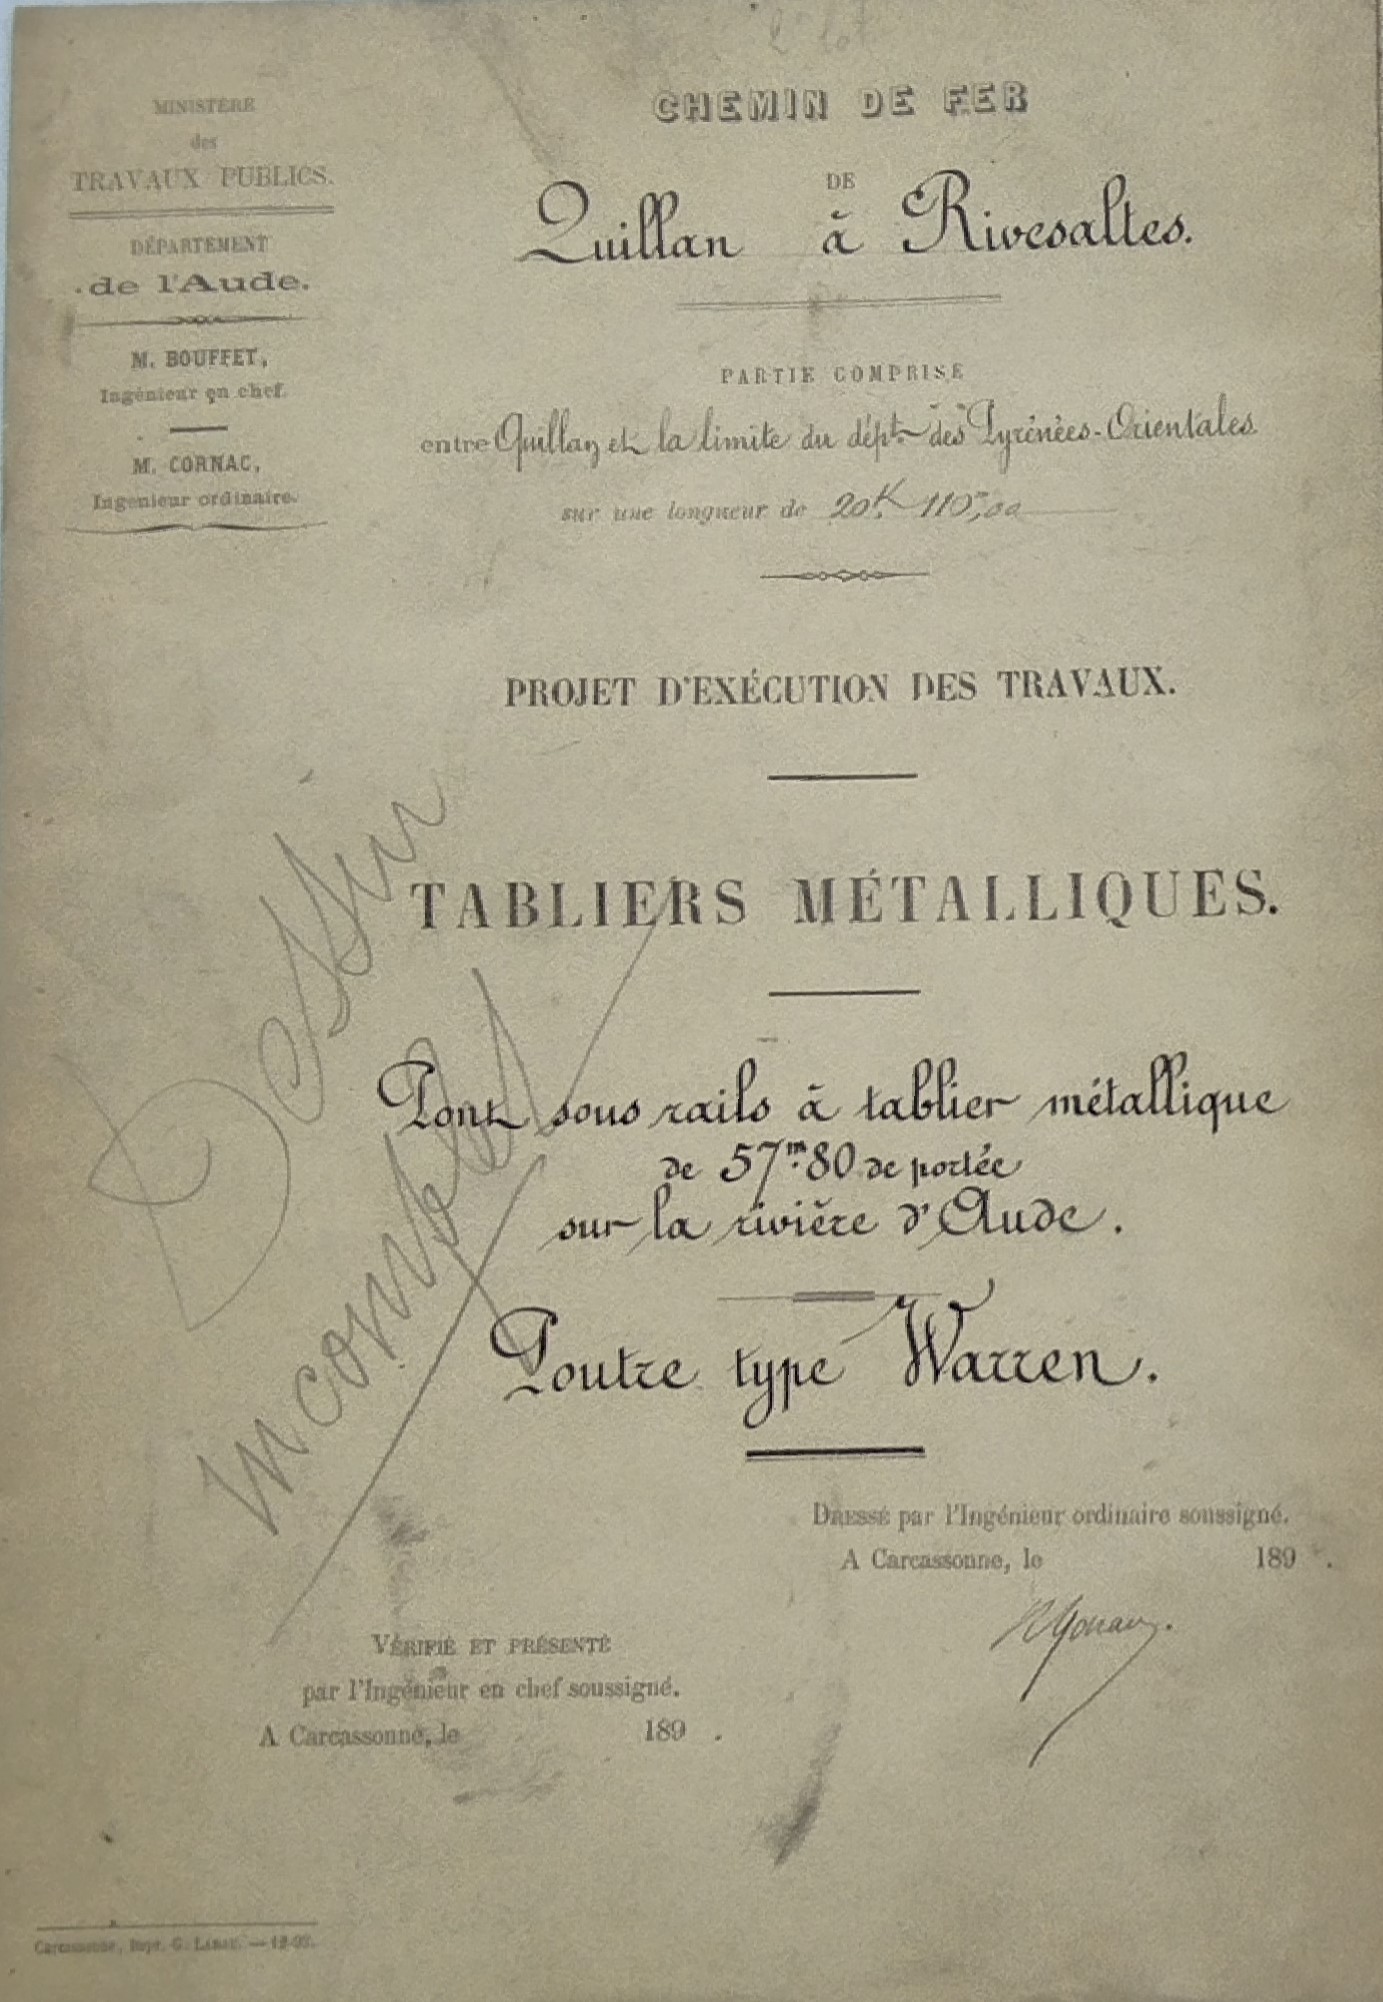 2e lot
MINISTÈRE
des
TRAVAUX PUBLICS.
DÉPARTEMENT
de l'Aude.
M. BOUFFET,
Ingénieur en chef.
M. CORNAC,
Ingénieur ordinaire.
CHEMIN DE FER
DE
Quillan à Rivesaltes.
PARTIE COMPRISE
entre Quillan et la limite du dépt. des Pyrénées-Orientales
sur une longueur de 20K. 110m,00
PROJET D'EXÉCUTION DES TRAVAUX.
TABLIERS MÉTALLIQUES.
Dessin
incomplet
Pont sous rails à tablier métallique
de 57m.80 de portée
sur la rivière d'Aude.
Poutre type Warren.
DRESSÉ par l'Ingénieur ordinaire soussigné.
A Carcassonne, le 189 .
VÉRIFIÉ ET PRÉSENTÉ
par l'Ingénieur en chef soussigné.
A Carcassonne, le 189 .
Carcassonne, Impr. G.